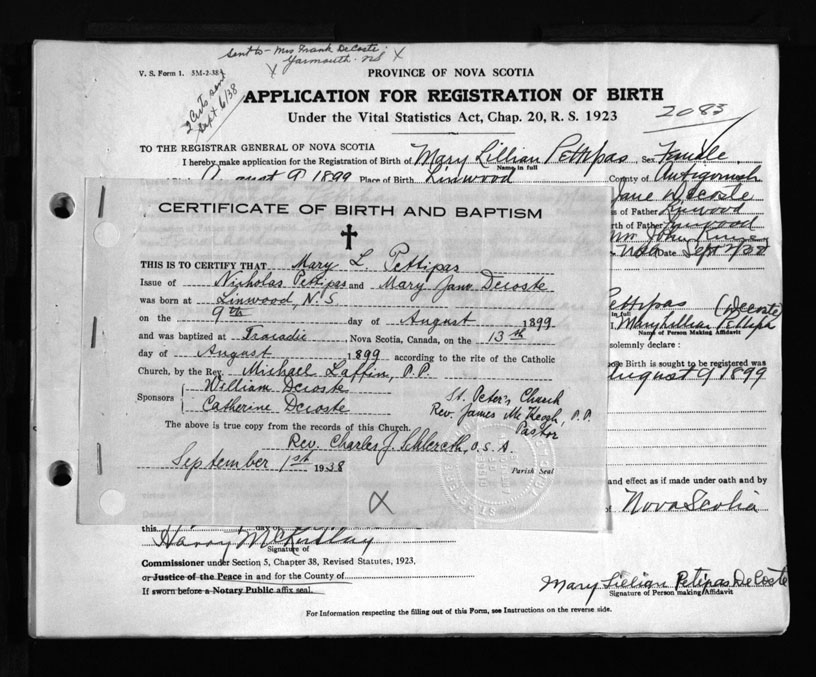 Sent to - Mrs Frank DeCoste
Yarmouth. NS
V. S. Form 1. 3M-2-38
2 Certs sent
Sept 6/38
PROVINCE OF NOVA SCOTIA
APPLICATION FOR REGISTRATION OF BIRTH
2083
Under the Vital Statistics Act, Chap. 20, R. S. 1923
TO THE REGISTRAR GENERAL OF NOVA SCOTIA
I hereby make application for the Registration of Birth of Mary Lillian Pettipas Sex Female
Name in full
August 9 1899 Place of Birth Linwood County of Antigonish
Jane DeCoste
of Father Linwood
rth of Father Linwood
Mrs John
Date Sept 2/38
CERTIFICATE OF BIRTH AND BAPTISM
THIS IS TO CERTIFY THAT Mary L. Pettipas
Issue of Nicholas Pettipas and Mary Jane Decoste
was born at Linwood, N.S.
on the 9th day of August 1899
and was baptized at Tracadie, Nova Scotia, Canada, on the 13th
day of August 1899 according to the rite of the Catholic
Church, by the Rev. Michael Laffin, P.P.
Sponsors William Decoste
Catherine Decoste
St. Peter's Church
Rev. James McKeogh, P.P.
Pastor
The above is true copy from the records of this Church.
Rev. Charles J. Schlereth, O.S.A.
September 1st 1938
Parish Seal
X
Pettipas (Decoste)
in full
I, Mary Lillian Pettipas
Name of Person Making Affidavit
solemnly declare :
ose Birth is sought to be registered was
August 9 1899
and effect as if made under oath and by
of Nova Scotia
this day of
Harry McKinlay
Signature of
Commissioner under Section 5, Chapter 38, Revised Statutes, 1923,
or Justice of the Peace in and for the County of
If sworn before a Notary Public affix seal.
Mary Lillian Petipas DeCoste
Signature of Person making Affidavit
For Information respecting the filling out of this Form, see Instructions on the reverse side.